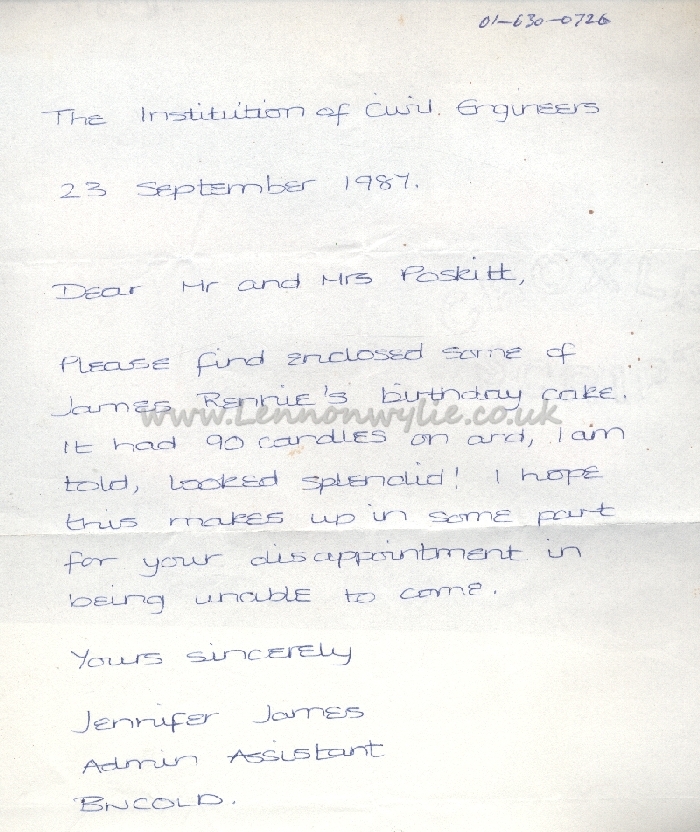 01-630-0726
The Institution of Civil. Engineers
23 September 1987.
Dear Mr and Mrs Poskitt,
Please find enclosed some of
James Rennie's birthday cake.
www.Lennonwylie.co.uk
It had 90 candles on and, I am
told, looked splendid! I hope
this makes up in some part
for your disappointment in
being unable to come.
Yours sincerely
Jennifer James
Admin Assistant
BNCOLD.